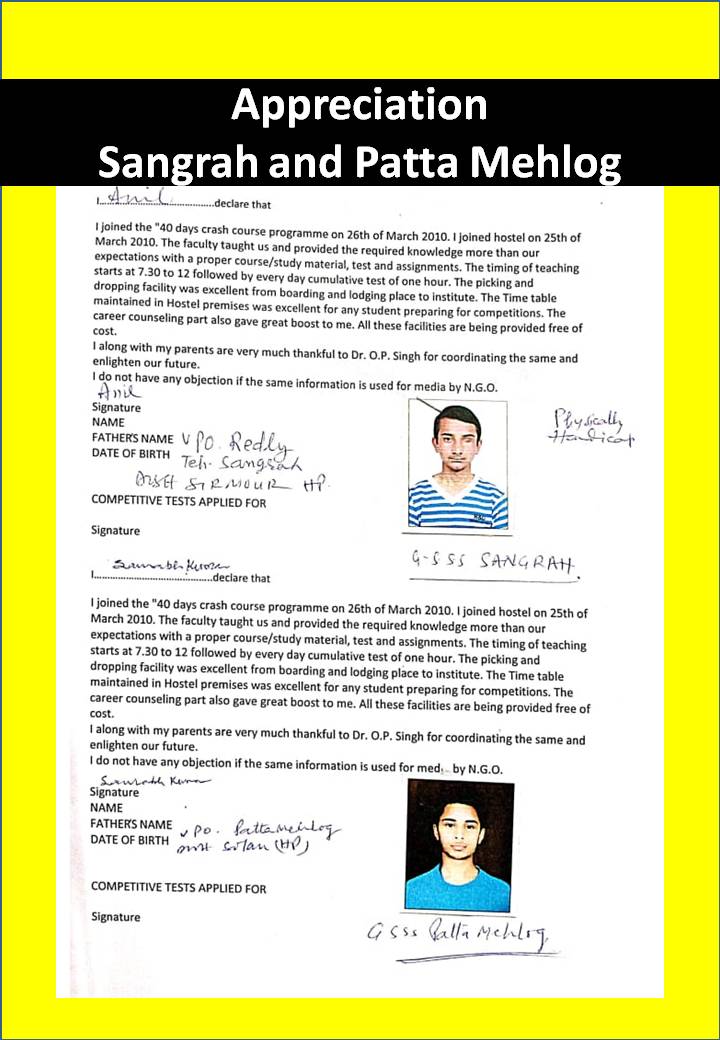 Appreciation
Sangrah and Patta Mehlog
I....Anil....declare that
I joined the "40 days crash course programme on 26th of March 2010. I joined hostel on 25th of
March 2010. The faculty taught us and provided the required knowledge more than our
expectations with a proper course/study material, test and assignments. The timing of teaching
starts at 7.30 to 12 followed by every day cumulative test of one hour. The picking and
dropping facility was excellent from boarding and lodging place to institute. The Time table
maintained in Hostel premises was excellent for any student preparing for competitions. The
career counseling part also gave great boost to me. All these facilities are being provided free of
cost.
I along with my parents are very much thankful to Dr. O.P. Singh for coordinating the same and
enlighten our future.
I do not have any objection if the same information is used for media by N.G.O.
Anil
Signature
NAME
FATHER'S NAME VPO. Redly
DATE OF BIRTH Teh. Sangrah
Distt SIRMOUR HP.
COMPETITIVE TESTS APPLIED FOR
Signature
Physically
Handicap
G-SSS SANGRAH.
I....Saurabh Kumar....declare that
I joined the "40 days crash course programme on 26th of March 2010. I joined hostel on 25th of
March 2010. The faculty taught us and provided the required knowledge more than our
expectations with a proper course/study material, test and assignments. The timing of teaching
starts at 7.30 to 12 followed by every day cumulative test of one hour. The picking and
dropping facility was excellent from boarding and lodging place to institute. The Time table
maintained in Hostel premises was excellent for any student preparing for competitions. The
career counseling part also gave great boost to me. All these facilities are being provided free of
cost.
I along with my parents are very much thankful to Dr. O.P. Singh for coordinating the same and
enlighten our future.
I do not have any objection if the same information is used for med by N.G.O.
Saurabh Kumar
Signature
NAME
FATHER'S NAME VPO. Patta Mehlog
DATE OF BIRTH Distt Solan (HP)
COMPETITIVE TESTS APPLIED FOR
Signature
GSSS Patta Mehlog